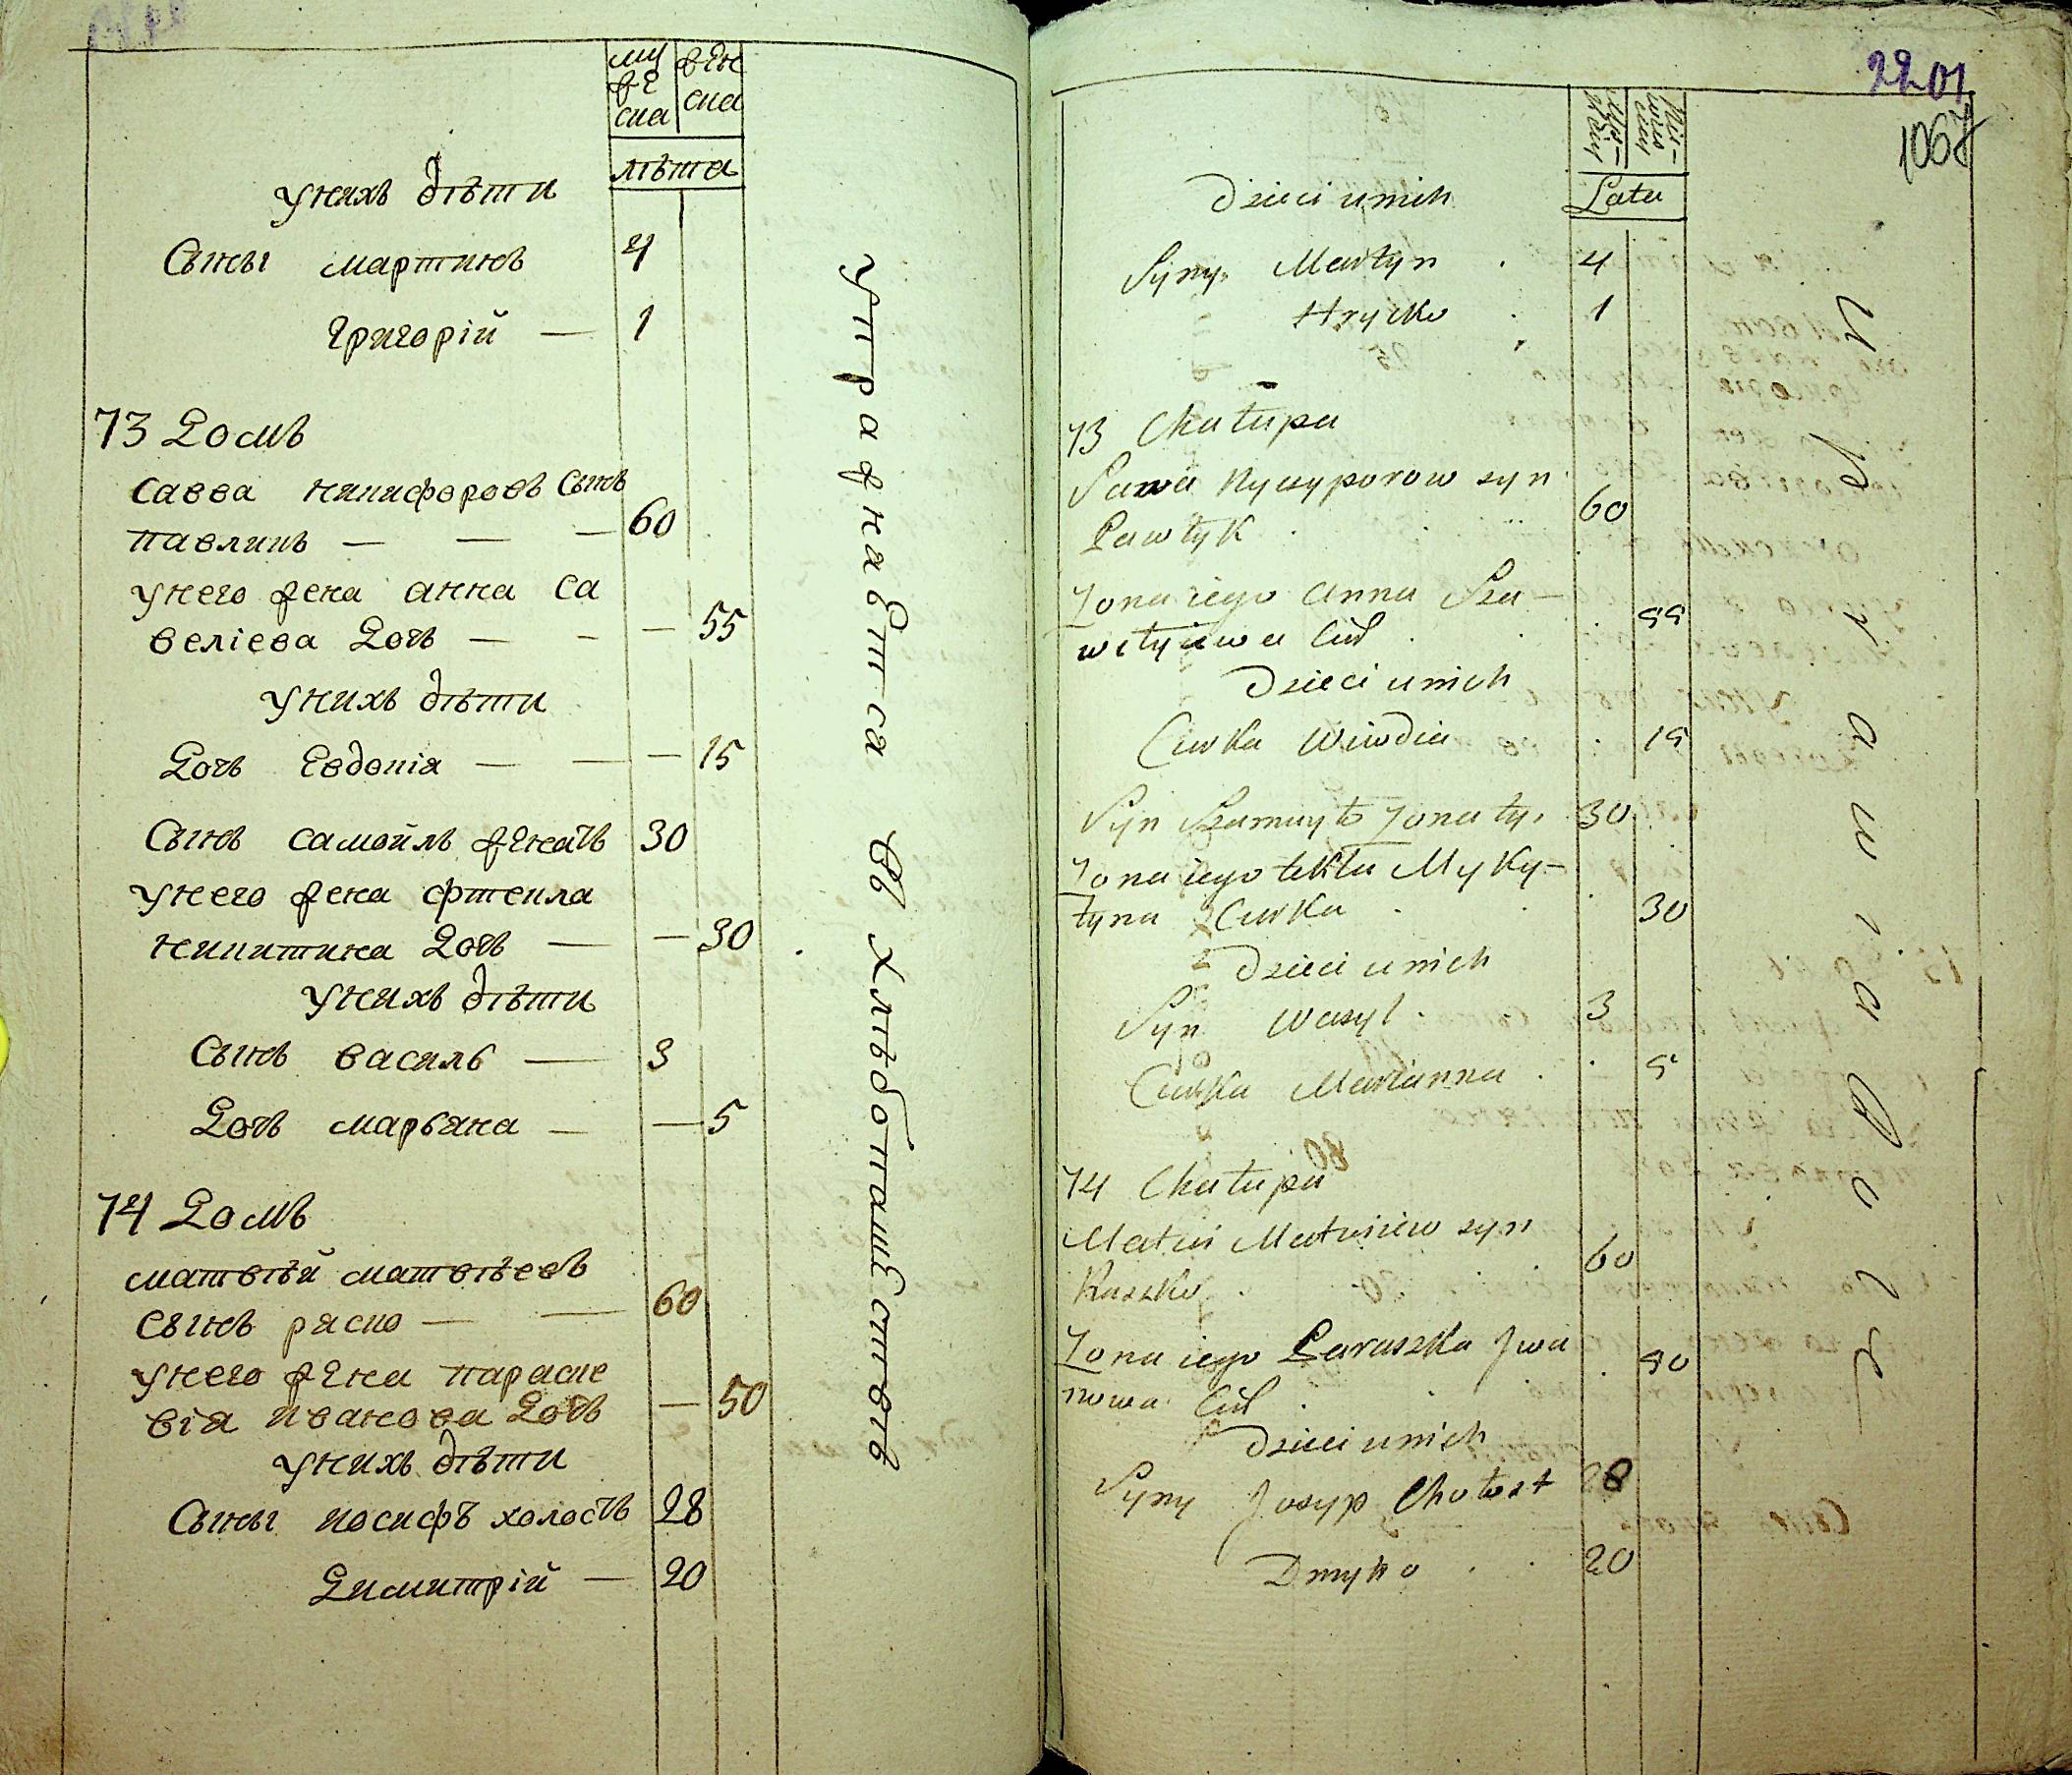 му
же
ска
жен
ска
лѣта
унихъ дѣти
Сыны мартинъ 4
григорій — 1
73 Домъ
савва никифоровъ сынъ
павликъ — — — 60
унего жена анна са
веліева Дочь — — — 55
унихъ дѣти
Дочь Евдокія — — — 15
Сынъ самойлъ женатъ 30
унего жена фтекла
никитина Дочь — — 30
унихъ дѣти
Сынъ василь — 3
Дочь марьяна — — 5
74 Домъ
матвѣй матвѣевъ
сынъ раско — — 60
унего жена параске
вія иванова Дочь — 50
унихъ дѣти
Сыны иосифъ холостъ 28
Димитрій — 20
упражнаетса въ хлѣбопашествѣ
2201
1067
Lata
Dzieci unich
Syny Martyn 4
Hrycko 1
73 Chałupa
Sawa Nycyporow syn
Pawłyk 60
Zona iego Anna Sza-
wełyiowa Cór 55
Dzieci unich
Curka Wiwdia 15
Syn Szamuyło Zonaty 30
Zona iego tekła Myky-
tyna Curka 30
Dzieci unich
Syn Wasyl 3
Curka Marianna 5
74 Chałupa
Matwi Matwiiew syn
Raszko 60
Zona iego Paraszka Jwa
nowa Cór 50
Dzieci unich
Syny Josyp Chołost 28
Dmytro 20